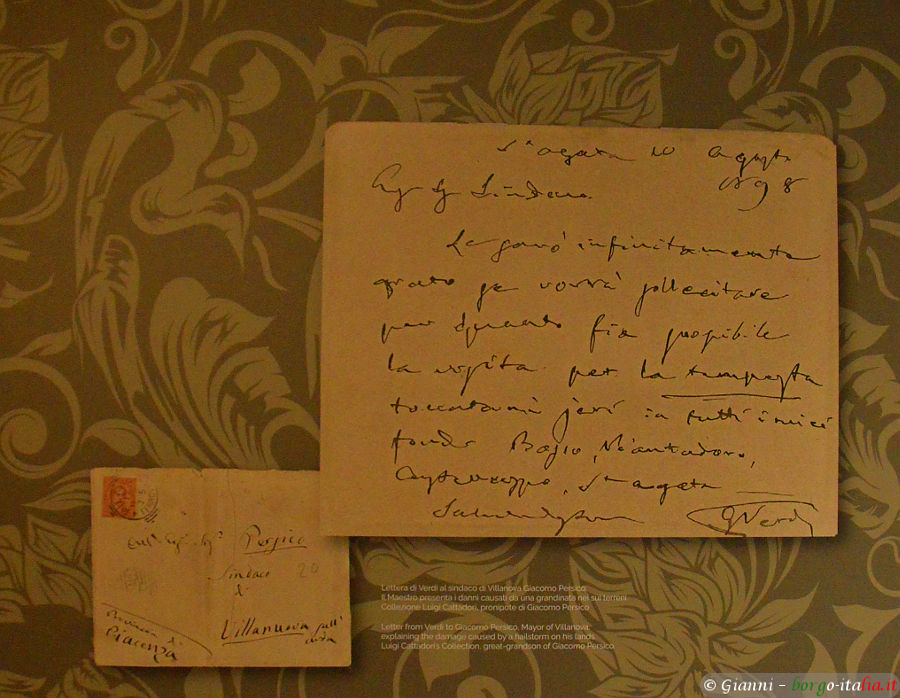 St agata 10 agosto
1898
Egr Sig Sindaco
Le sarò infinitamente
grato se vorrà sollecitare
per quanto fia possibile
la visita per la tempesta
toccatami jeri in tutti i miei
fondi
St agata
GVerdi
Persico
Sindaco
di
20
Villanova sull'
arda
Provincia di
Piacenza
Lettera di Verdi al sindaco di Villanova Giacomo Persico:
Il Maestro presenta i danni causati da una grandinata nei sui terreni
Collezione Luigi Cattadori, pronipote di Giacomo Persico
Letter from Verdi to Giacomo Persico, Mayor of Villanova:
explaining the damage caused by a hailstorm on his lands
Luigi Cattadori's Collection, great-grandson of Giacomo Persico
© Gianni - borgo-italia.it